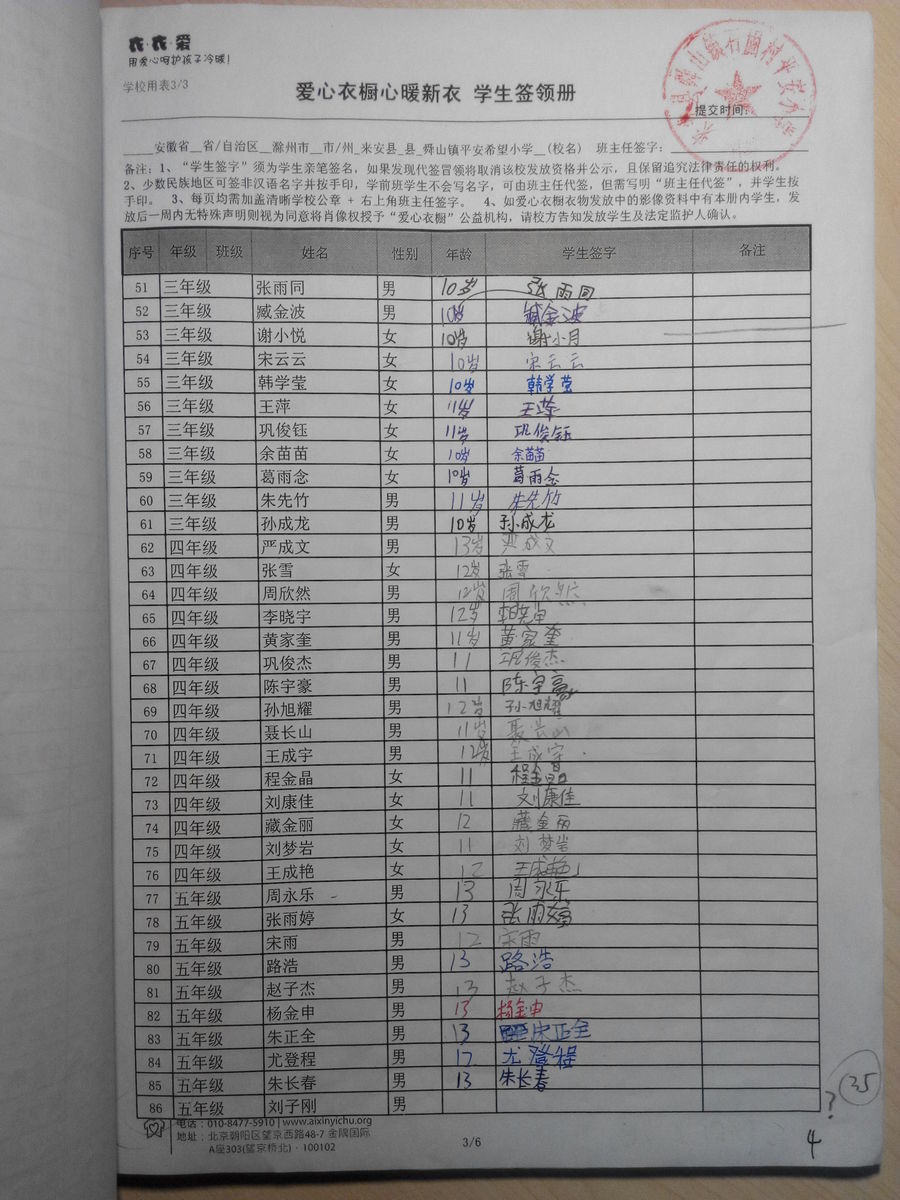 衣·衣·爱
用爱心呵护孩子冷暖!
学校用表3/3
爱心衣橱心暖新衣 学生签领册
提交时间:
____安徽省__省/自治区__滁州市__市/州_来安县_县_舜山镇平安希望小学__(校名) 班主任签字:
备注:1、“学生签字”须为学生亲笔签名,如果发现代签冒领将取消该校发放资格并公示,且保留追究法律责任的权利。
2、少数民族地区可签非汉语名字并按手印,学前班学生不会写名字,可由班主任代签,但需写明“班主任代签”,并学生按
手印。 3、每页均需加盖清晰学校公章 + 右上角班主任签字。 4、如爱心衣橱衣物发放中的影像资料中有本册内学生,发
放后一周内无特殊声明则视为同意将肖像权授予“爱心衣橱”公益机构,请校方告知发放学生及法定监护人确认。
序号 年级 班级 姓名 性别 年龄 学生签字 备注
51 三年级 张雨同 男 10岁 张雨同
52 三年级 臧金波 男 10岁 臧金波
53 三年级 谢小悦 女 10岁 谢小月
54 三年级 宋云云 女 10岁 宋云云
55 三年级 韩学莹 女 10岁 韩学莹
56 三年级 王萍 女 11岁 王萍
57 三年级 巩俊钰 女 11岁 巩俊钰
58 三年级 余苗苗 女 10岁 余苗苗
59 三年级 葛雨念 女 10岁 葛雨念
60 三年级 朱先竹 男 11岁 朱先竹
61 三年级 孙成龙 男 10岁 孙成龙
62 四年级 严成文 男 13岁 严成文
63 四年级 张雪 女 12岁 张雪
64 四年级 周欣然 男 12岁 周欣然
65 四年级 李晓宇 男 12岁
66 四年级 黄家奎 男 11岁 黄家奎
67 四年级 巩俊杰 男 11 巩俊杰
68 四年级 陈宇豪 男 11 陈宇豪
69 四年级 孙旭耀 男 12岁 孙旭耀
70 四年级 聂长山 男 11岁 聂长山
71 四年级 王成宇 男 12岁 王成宇
72 四年级 程金晶 女 11 程金晶
73 四年级 刘康佳 女 11 刘康佳
74 四年级 藏金丽 女 12 藏金丽
75 四年级 刘梦岩 女 11 刘梦岩
76 四年级 王成艳 女 12 王成艳
77 五年级 周永乐 男 13 周永乐
78 五年级 张雨婷 女 13 张雨婷
79 五年级 宋雨 男 12 宋雨
80 五年级 路浩 男 13 路浩
81 五年级 赵子杰 男 13 赵子杰
82 五年级 杨金申 男 13 杨金申
83 五年级 朱正全 男 13 朱正全
84 五年级 尤登程 男 12 尤登程
85 五年级 朱长春 男 13 朱长春
86 五年级 刘子刚 男
? 35
电话:010-8477-5910 | www.aixinyichu.org
地址:北京朝阳区望京西路48-7 金隅国际
A座303(望京桥北)·100102
3/6
4